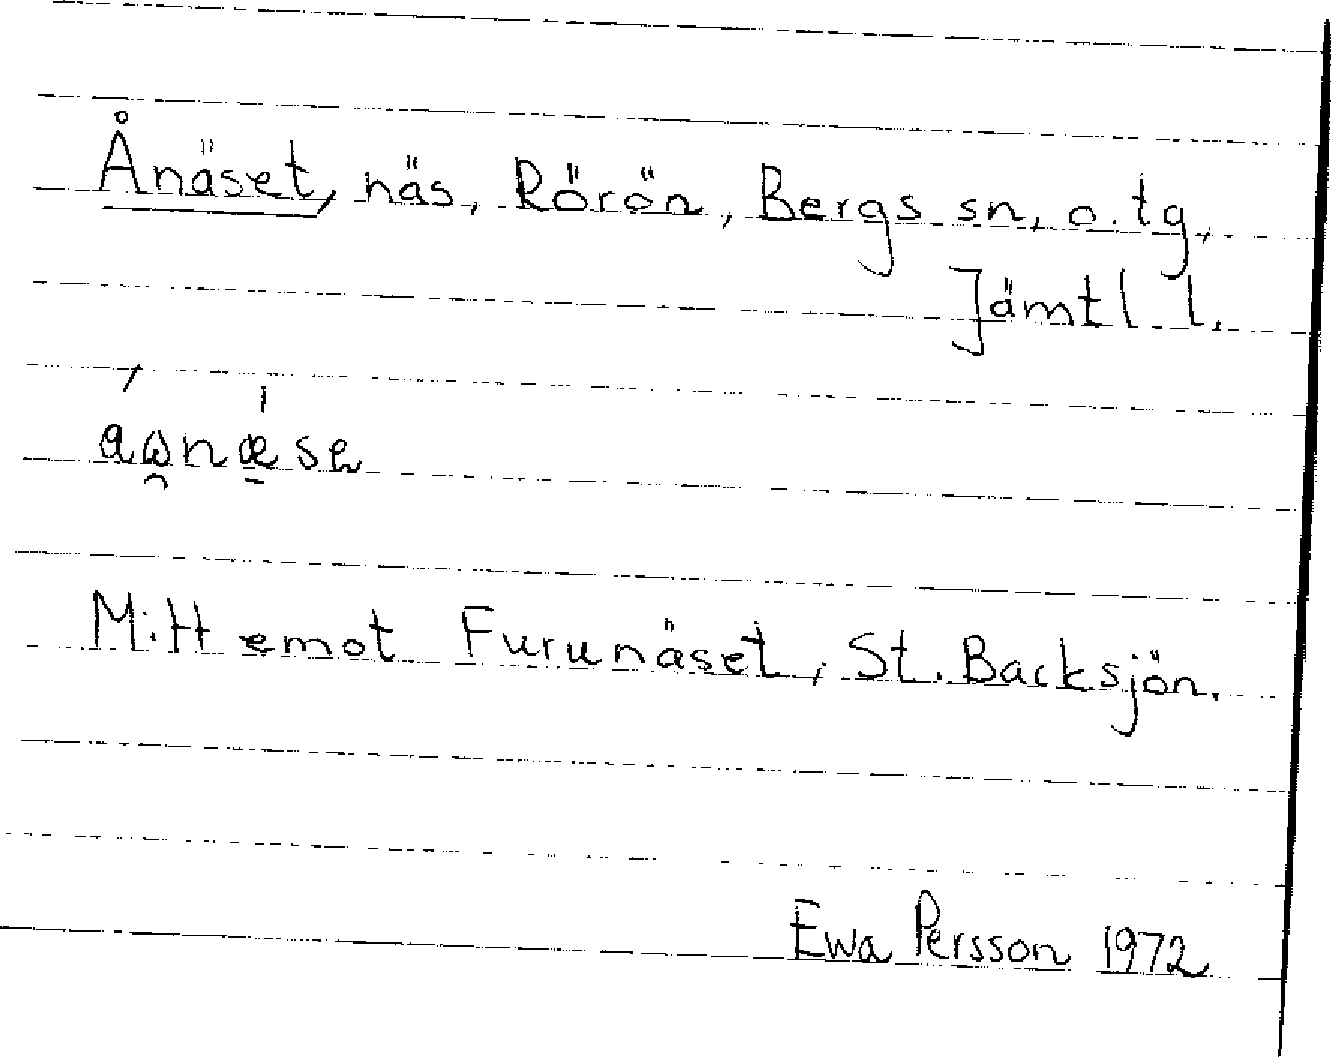 Ånäset, näs, Rörön, Bergs sn, o. tg,
Jämtl l.
Mitt emot Furunäset, St. Backsjön.
Ewa Persson 1972